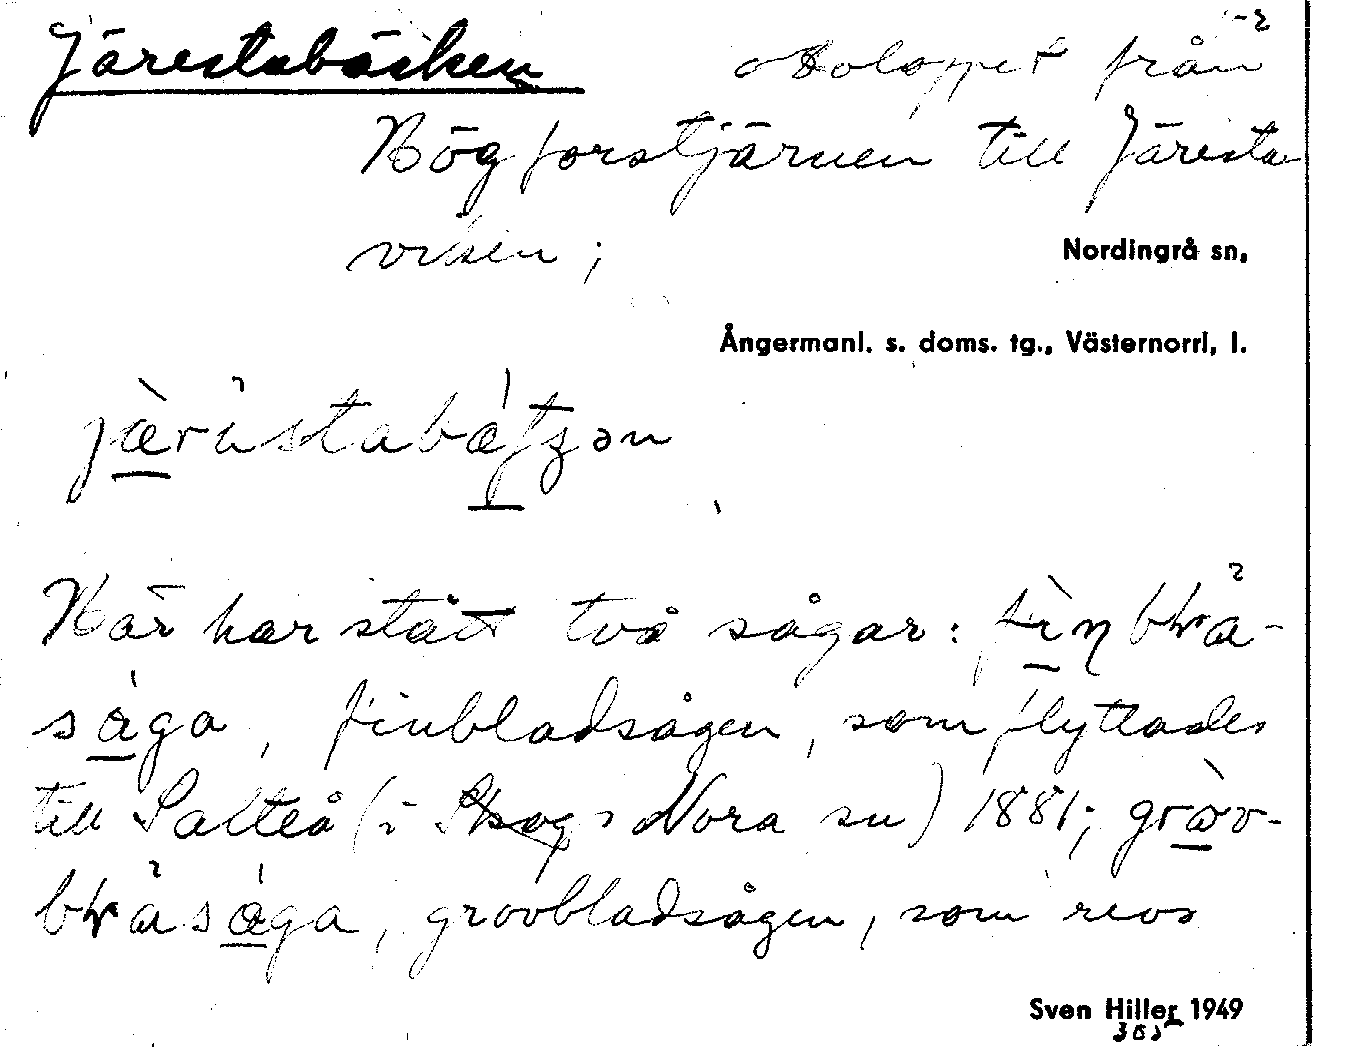 Järestabäcken avloppet från
Högforstjärnen till Järesta-
viken;
Nordingrå sn,
Ångermanl. s. doms. tg., Västernorrl, l.
Här har stått två sågar:
finbladsågen, som flyttades
till Salteå (i Skogs Nora sn) 1881;
grovbladsågen, som revs
Sven Hiller 1949